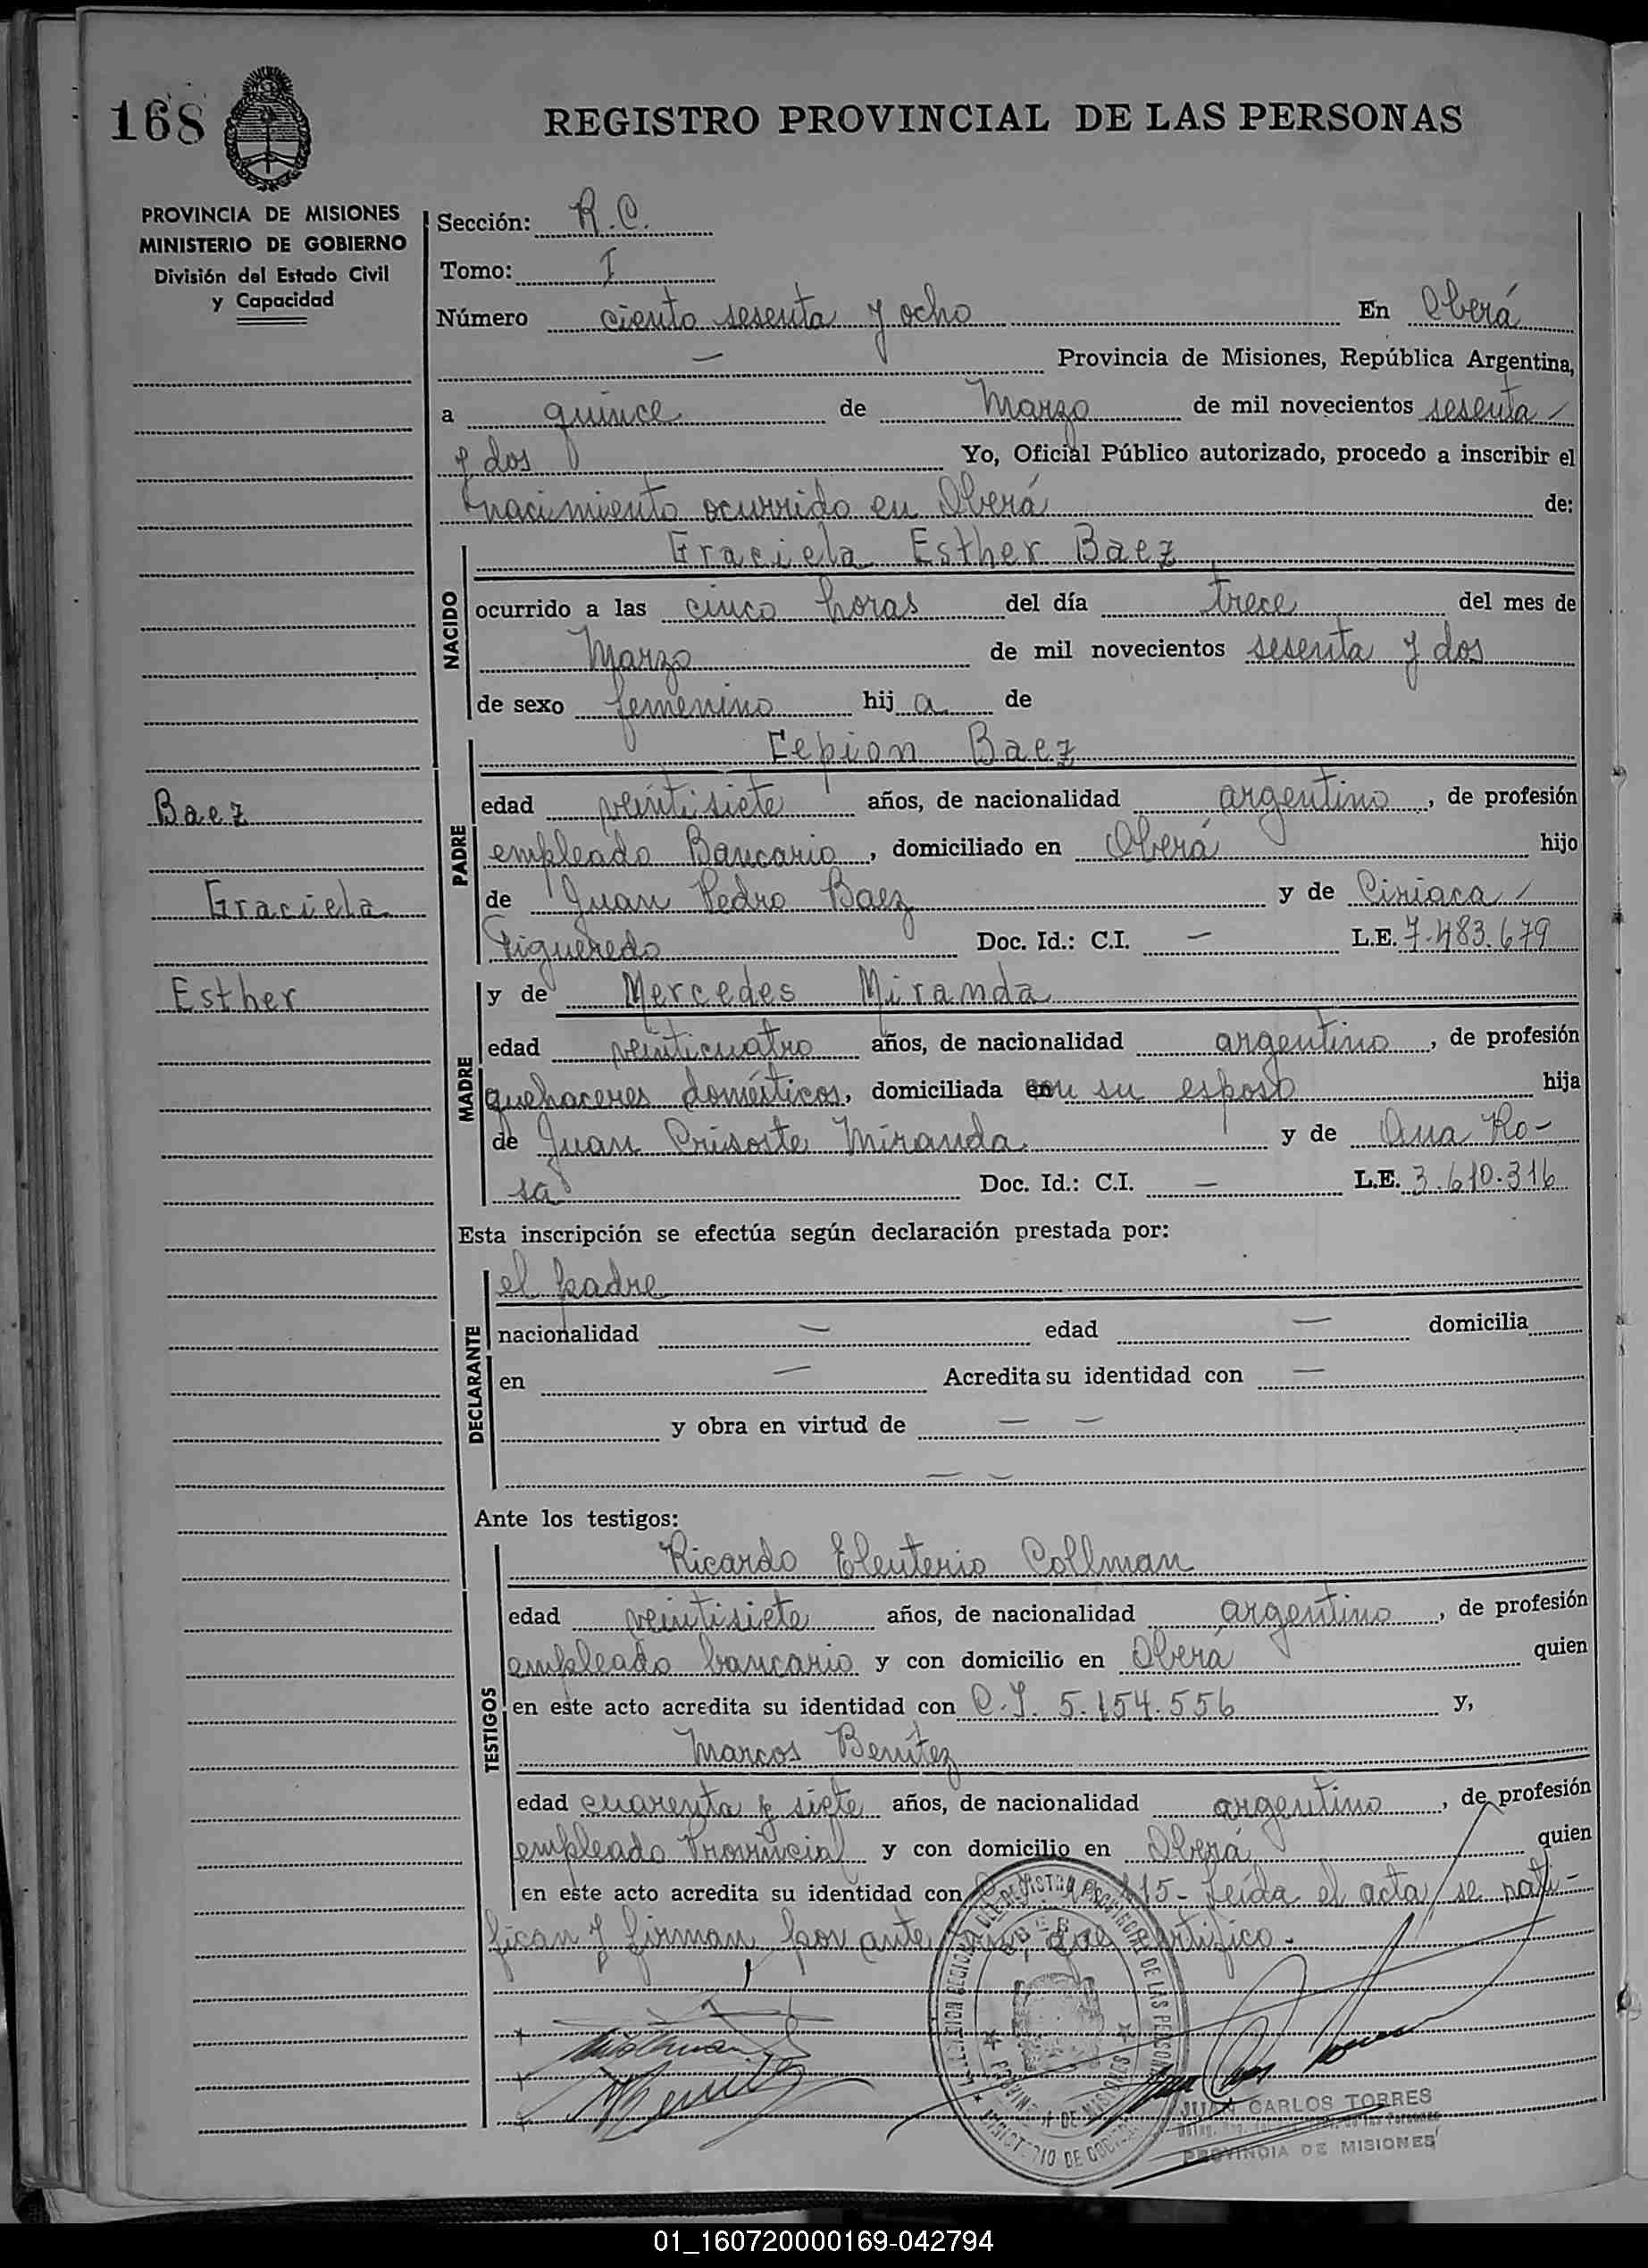 168
REGISTRO PROVINCIAL DE LAS PERSONAS
PROVINCIA DE MISIONES
MINISTERIO DE GOBIERNO
División del Estado Civil
y Capacidad
Sección: R.C.
Tomo: I
Número ciento sesenta y ocho En Oberá
— Provincia de Misiones, República Argentina,
a quince de Marzo de mil novecientos sesenta
y dos Yo, Oficial Público autorizado, procedo a inscribir el
nacimiento ocurrido en Oberá de:
NACIDO
Graciela Esther Baez
ocurrido a las cinco horas del día trece del mes de
Marzo de mil novecientos sesenta y dos
de sexo femenino hij a de
PADRE
Baez
edad veintisiete años, de nacionalidad argentino, de profesión
Baez
empleado Bancario, domiciliado en Oberá hijo
de Juan Pedro Baez y de Ciriaca
Graciela
Figueredo Doc. Id.: C.I. — L.E. 7.483.679
MADRE
y de Mercedes Miranda
Esther
edad veinticuatro años, de nacionalidad argentino, de profesión
quehaceres domésticos, domiciliada con su esposo hija
de Juan Crisoste Miranda y de Ana Ro-
sa Doc. Id.: C.I. — L.E. 3.610.316
Esta inscripción se efectúa según declaración prestada por:
DECLARANTE
el padre
nacionalidad — edad — domicilia
en — Acredita su identidad con —
y obra en virtud de — —
— —
Ante los testigos:
TESTIGOS
Ricardo Eleuterio Collman
edad veintisiete años, de nacionalidad argentino, de profesión
empleado bancario y con domicilio en Oberá quien
en este acto acredita su identidad con C.I. 5.154.556 y,
Marcos Benítez
edad cuarenta y siete años, de nacionalidad argentino, de profesión
empleado Provincial y con domicilio en Oberá quien
en este acto acredita su identidad con 115- Leída el acta se rati-
fican y firman por ante mí, que certifico.
JUAN CARLOS TORRES
PROVINCIA DE MISIONES
01_160720000169-042794